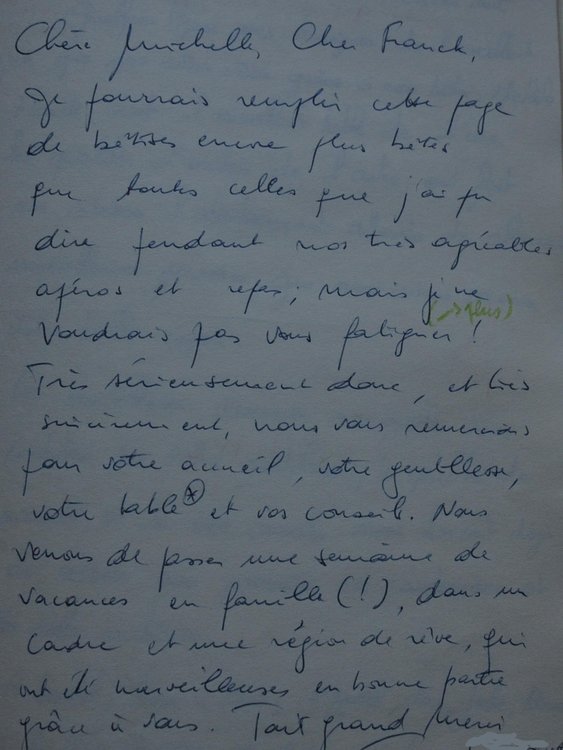 Chère Michelle, Cher Franck,
Je pourrais remplir cette page
de bêtises encore plus bêtes
que toutes celles que j'ai pu
dire pendant nos très agréables
apéros et repas; mais je ne
(+ plus)
voudrais pas vous fatiguer !
Très sérieusement donc, et très
sincèrement, nous vous remercions
pour votre accueil, votre gentillesse,
votre table* et vos conseils. Nous
venons de passer une semaine de
vacances en famille (!), dans un
cadre et une région de rêve, qui
ont été merveilleuses en bonne partie
grâce à vous. Tout grand merci